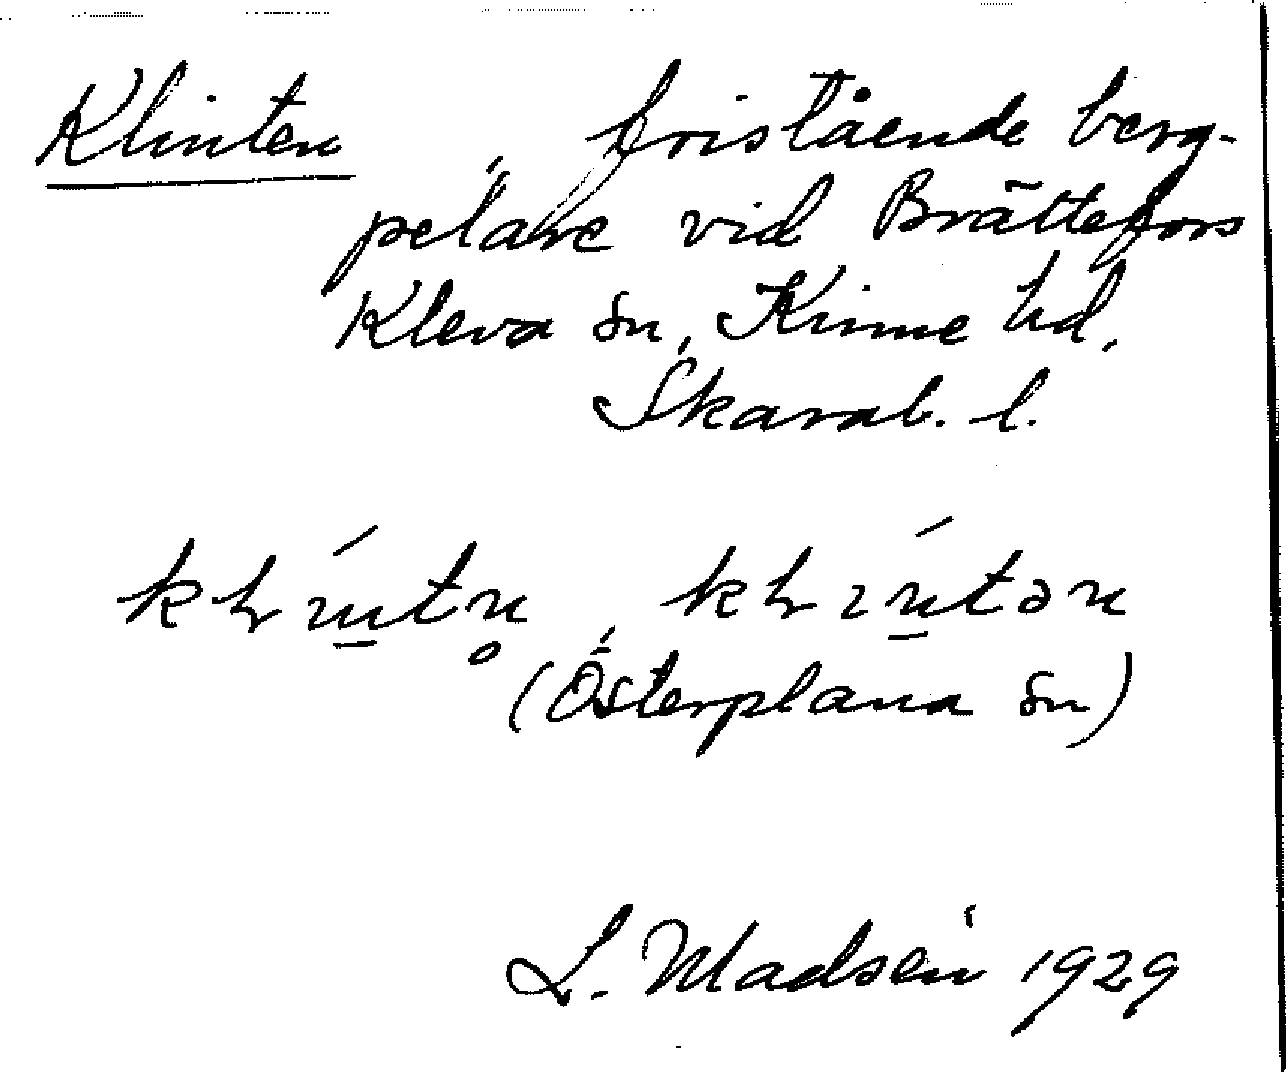 Klinten, fristående berg-
pelare vid Brättefors
Kleva sn, Kinne hd,
Skarab. l.
(Österplana sn)
L. Madsén 1929